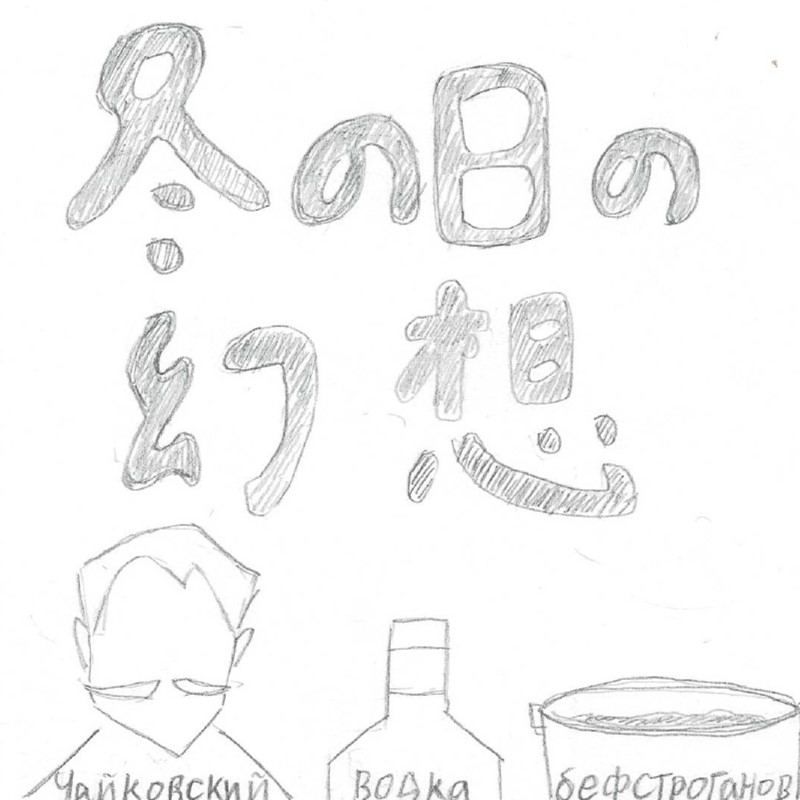 冬の日の
幻想
Чайковский
водка
бефстроганов